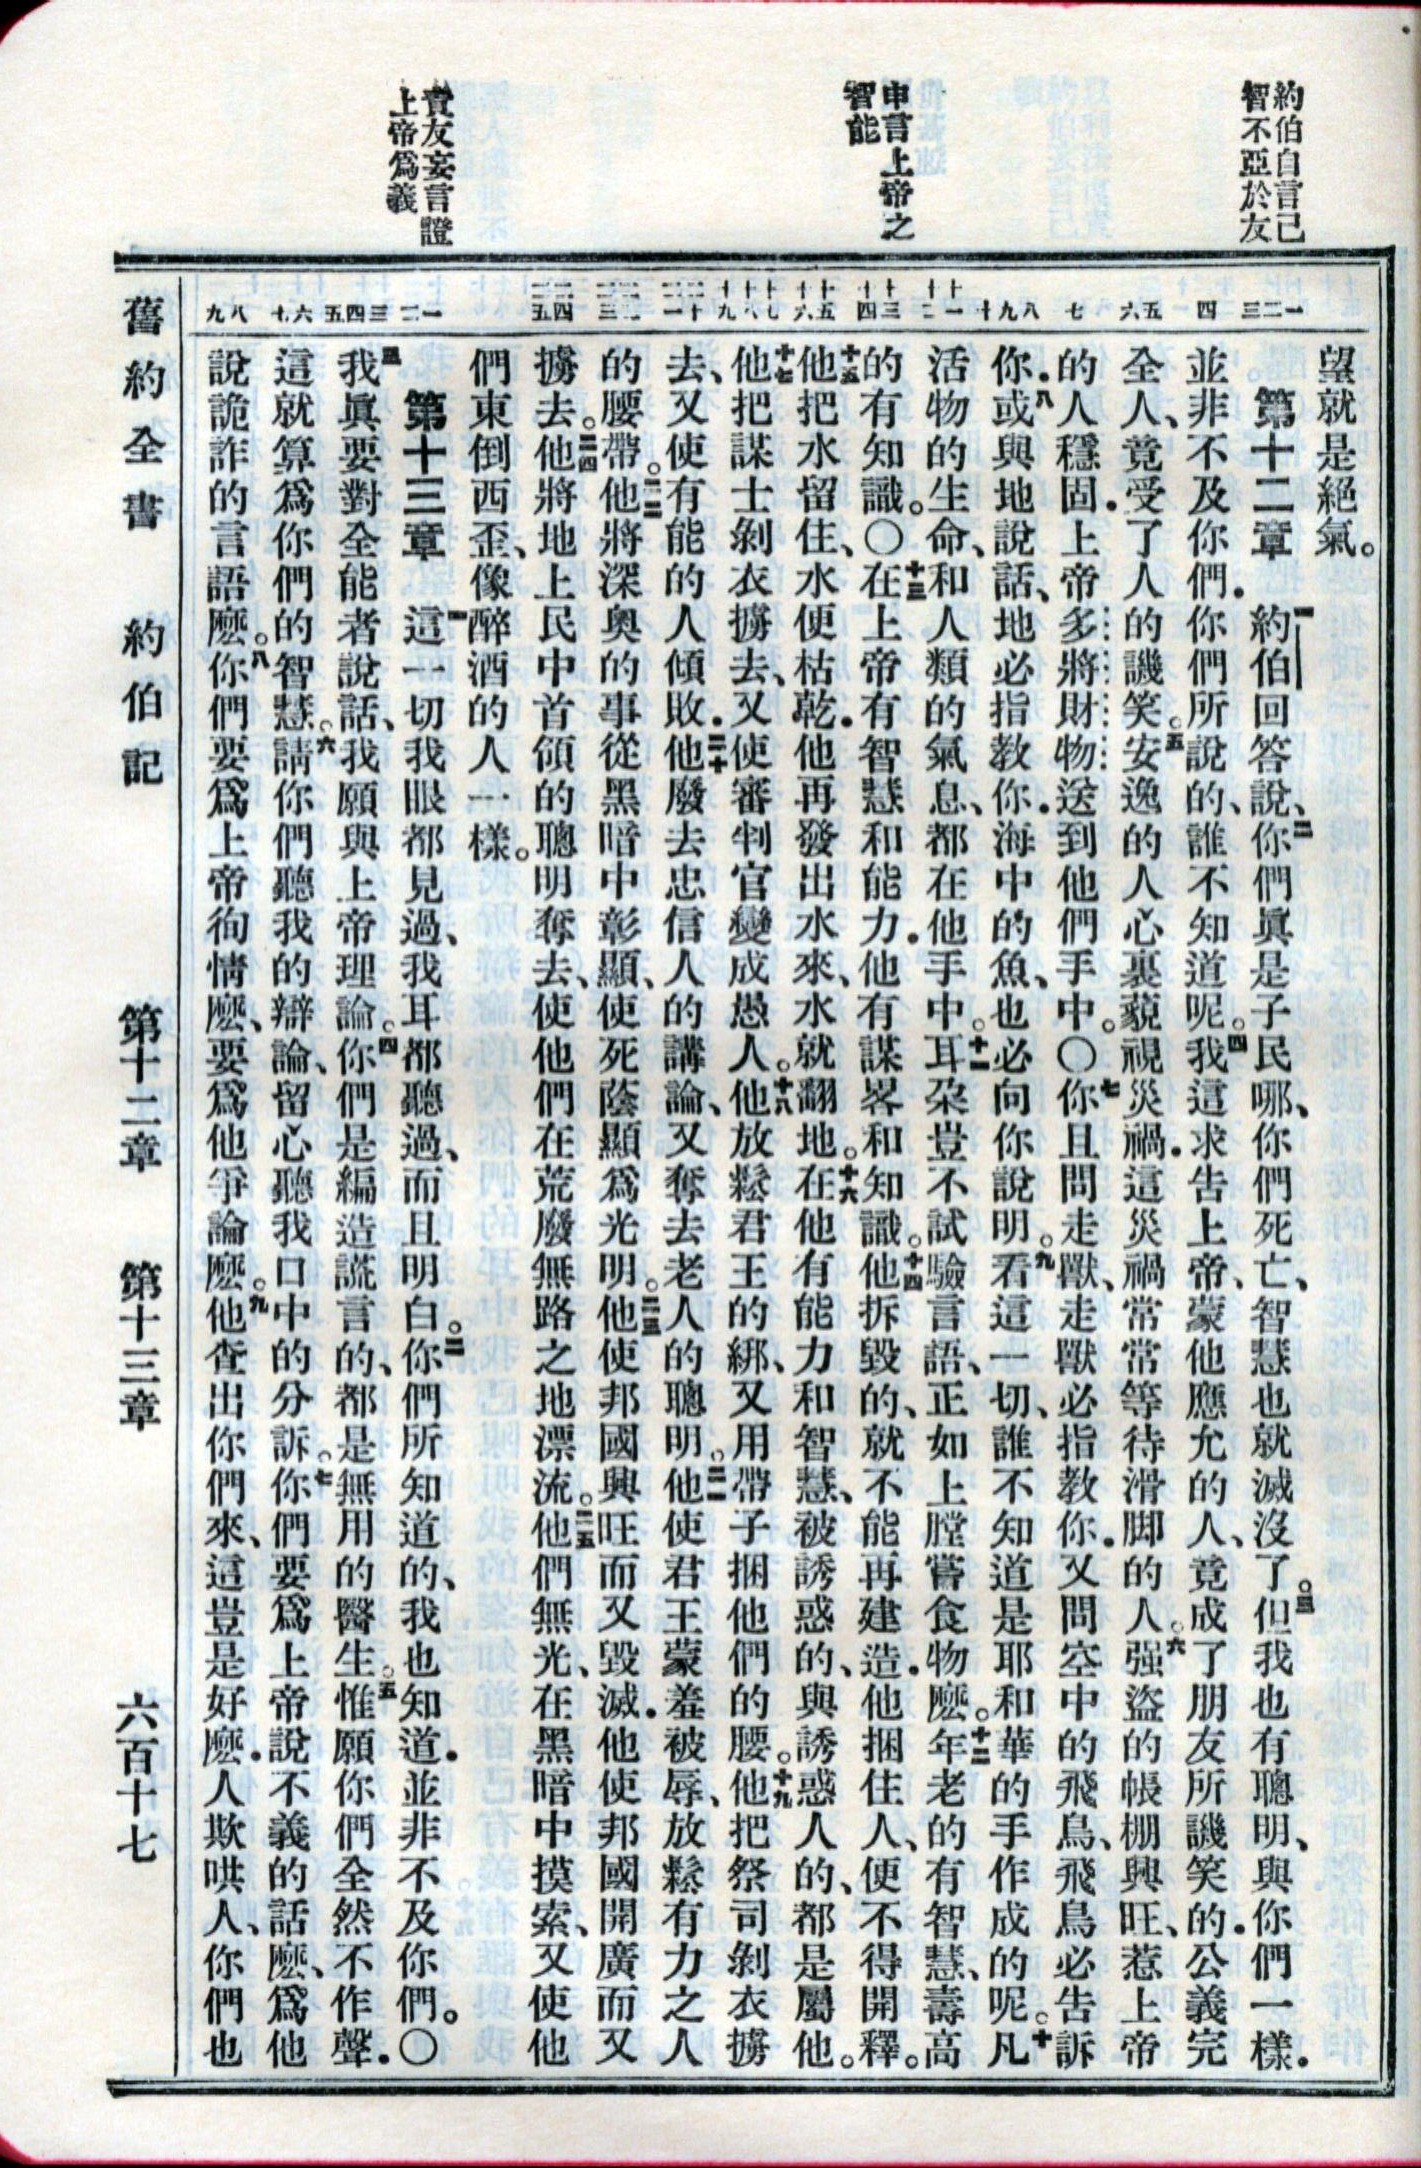 約伯自言己
智不亞於友
申言上帝之
智能
責友妄言證
上帝爲義
一二三
四
五六
七
八九十
十一十二
十三十四
十五十六
十七十八十九
二十二十一
二二二三
二四二五
一二
三四五
六七
八九
望就是絕氣。
第十二章 一約伯回答說、二你們眞是子民哪、你們死亡、智慧也就滅沒了。三但我也有聰明、與你們一樣．
並非不及你們．你們所說的、誰不知道呢。四我這求告上帝、蒙他應允的人、竟成了朋友所譏笑的．公義完
全人、竟受了人的譏笑。五安逸的人心裏藐視災禍．這災禍常常等待滑脚的人。六强盜的帳棚興旺、惹上帝
的人穩固．上帝多將財物送到他們手中。〇七你且問走獸、走獸必指教你．又問空中的飛鳥、飛鳥必告訴
你．八或與地說話、地必指教你．海中的魚、也必向你說明。九看這一切、誰不知道是耶和華的手作成的呢。十凡
活物的生命、和人類的氣息、都在他手中。十一耳朶豈不試驗言語、正如上膛嘗食物麽。十二年老的有智慧、壽高
的有知識。〇十三在上帝有智慧和能力．他有謀畧和知識。十四他拆毀的、就不能再建造．他捆住人、便不得開釋。
十五他把水留住、水便枯乾．他再發出水來、水就翻地。十六在他有能力和智慧、被誘惑的、與誘惑人的、都是屬他。
十七他把謀士剝衣擄去、又使審判官變成愚人。十八他放鬆君王的綁、又用帶子捆他們的腰。十九他把祭司剝衣擄
去、又使有能的人傾敗．二十他廢去忠信人的講論、又奪去老人的聰明。二一他使君王蒙羞被辱、放鬆有力之人
的腰帶。二二他將深奥的事從黑暗中彰顯、使死蔭顯爲光明。二三他使邦國興旺而又毀滅．他使邦國開廣而又
擄去。二四他將地上民中首領的聰明奪去、使他們在荒廢無路之地漂流。二五他們無光、在黑暗中摸索、又使他
們東倒西歪、像醉酒的人一樣。
第十三章 一這一切我眼都見過、我耳都聽過、而且明白。二你們所知道的、我也知道．並非不及你們。〇
三我眞要對全能者說話、我願與上帝理論。四你們是編造謊言的、都是無用的醫生。五惟願你們全然不作聲．
這就算爲你們的智慧。六請你們聽我的辯論、留心聽我口中的分訴。七你們要爲上帝說不義的話麽、爲他
說詭詐的言語麽。八你們要爲上帝徇情麽、要爲他爭論麽。九他查出你們來、這豈是好麽．人欺哄人、你們也
舊約全書 約伯記 第十二章 第十三章 六百十七